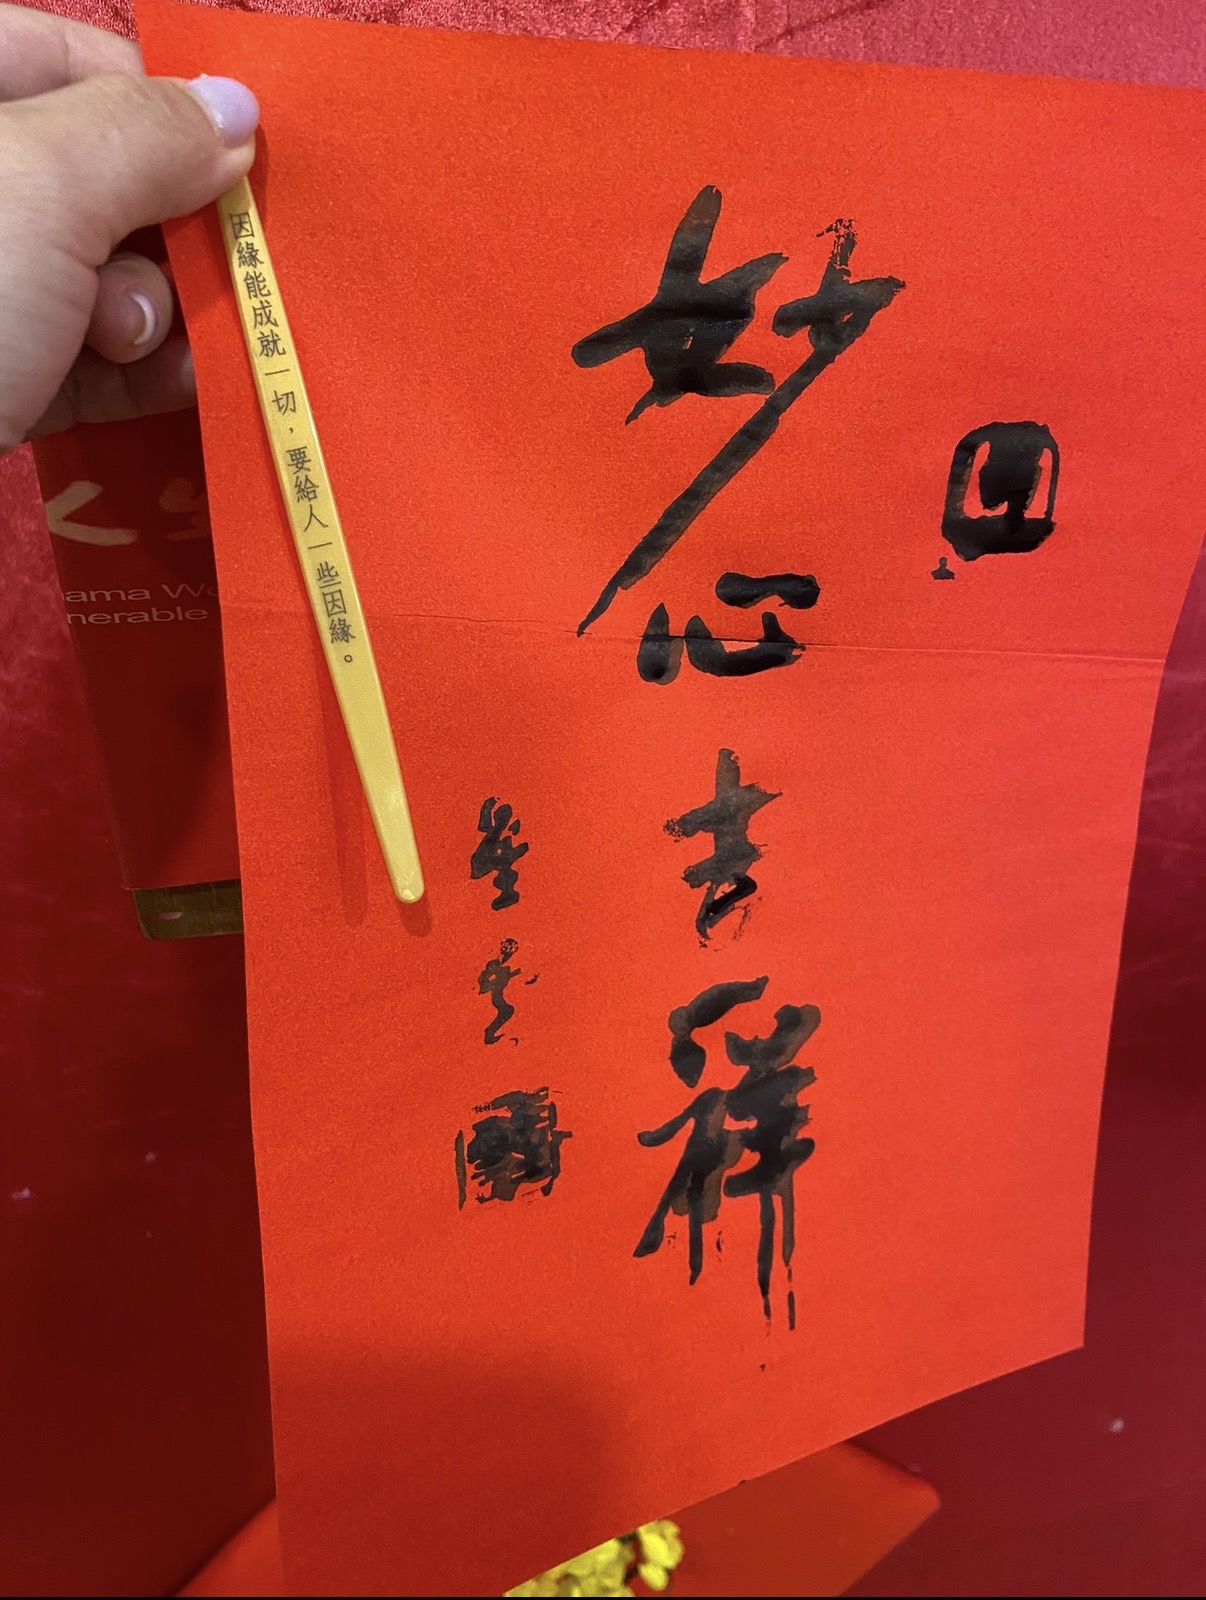 因緣能成就一切，要給人一些因緣。
妙心吉祥
星雲
人生
ama Wo
nerable